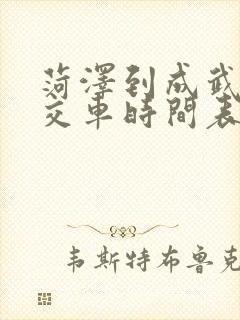 菏澤到成武
交車時間表
韦斯特布鲁克